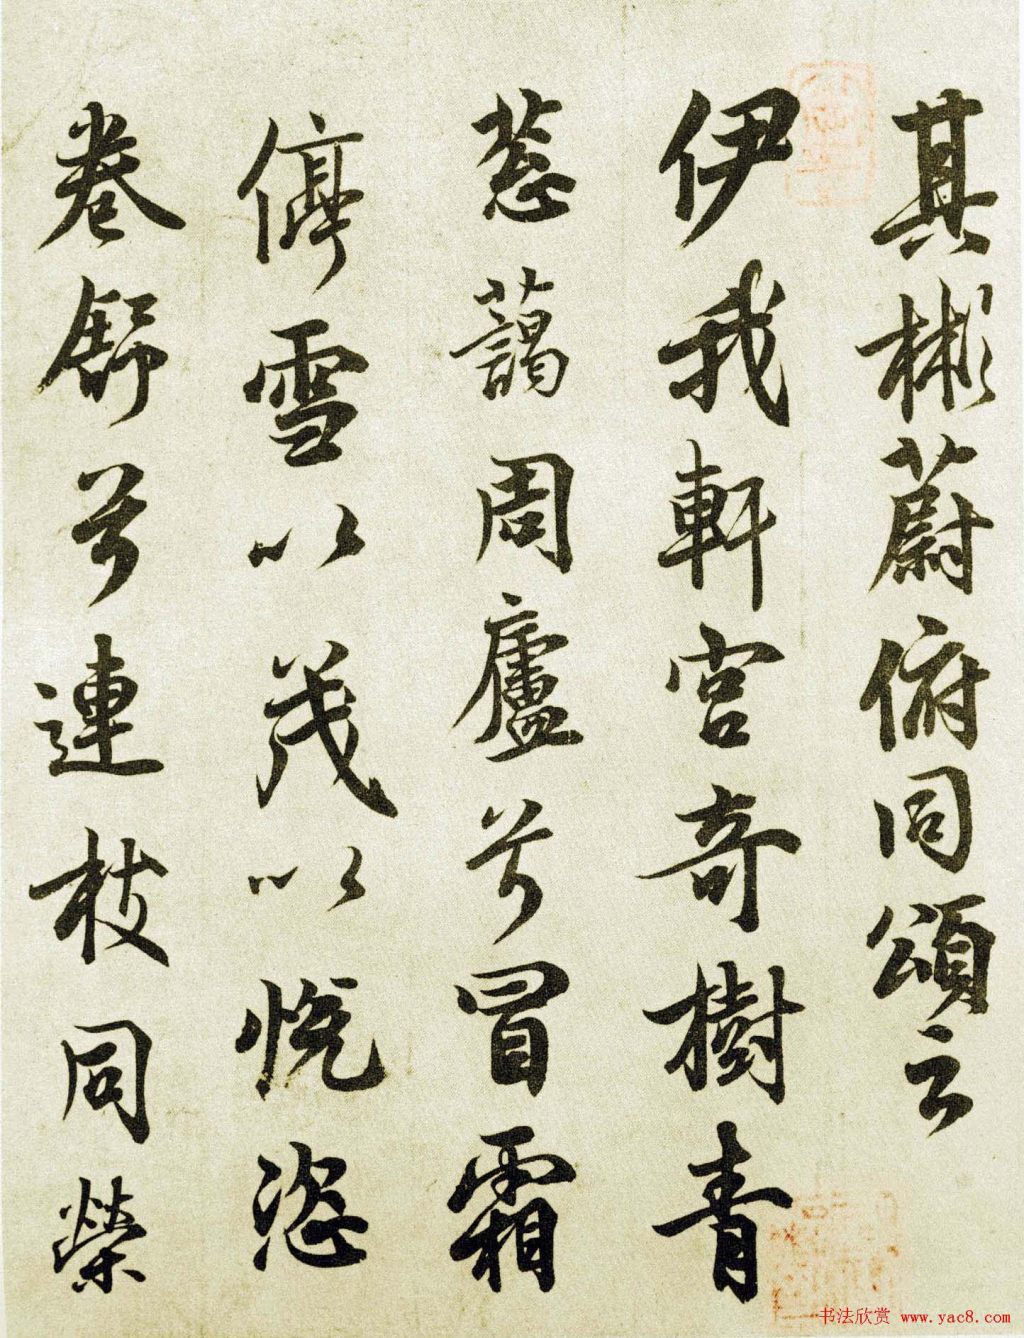 其彬蔚俯同頌云
伊我軒宮奇樹青
蔥藹周廬兮冒霜
停雪以茂以悅恣
卷舒兮連枝同榮
书法欣赏 www.yac8.com